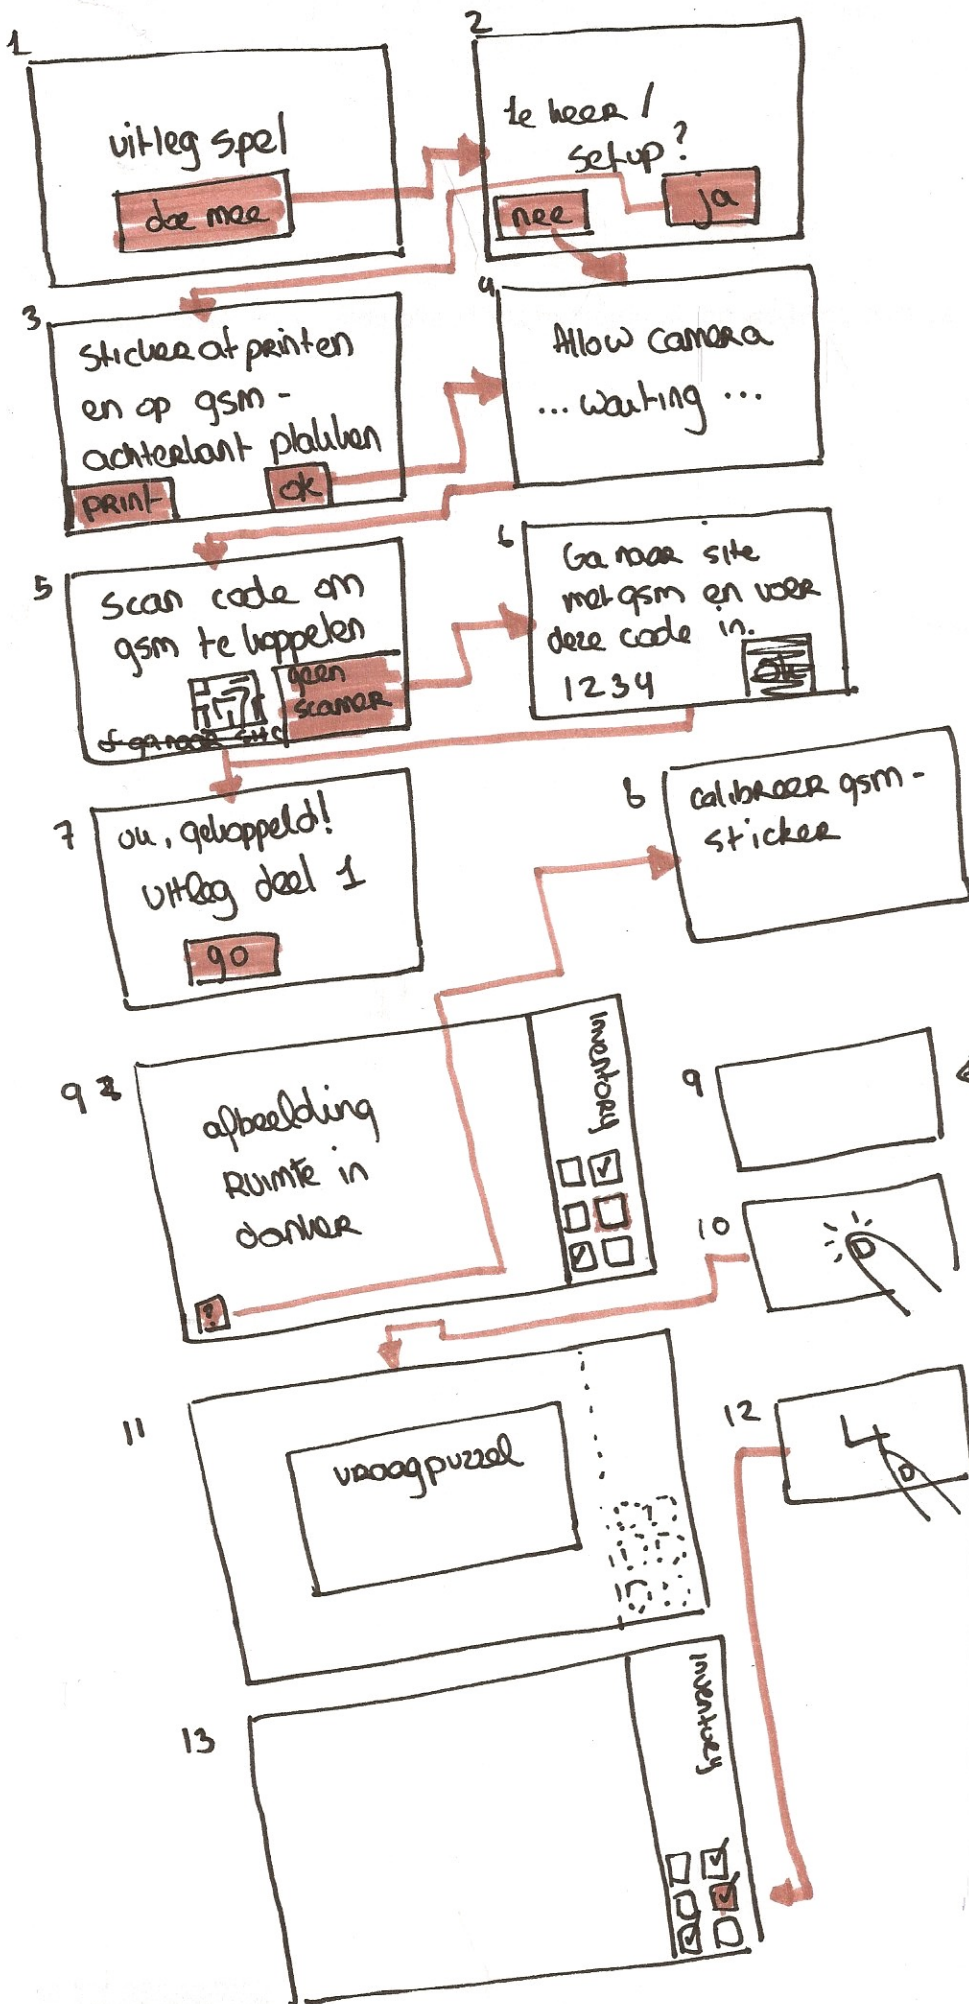 1
uitleg spel
doe mee
2
1e keer /
setup?
nee
ja
3
Sticker afprinten
en op gsm -
achterkant plakken
print
ok
4
Allow camera
... waiting ...
5
scan code om
gsm te koppelen
geen
scanner
of ga naar site
6
Ga naar site
met gsm en voer
deze code in.
1234
ok
7
ok, gekoppeld!
uitleg deel 1
go
8
calibreer gsm -
sticker
9
afbeelding
Ruimte in
donker
?
Inventory
9
10
11
vraagpuzzel
12
13
Inventory